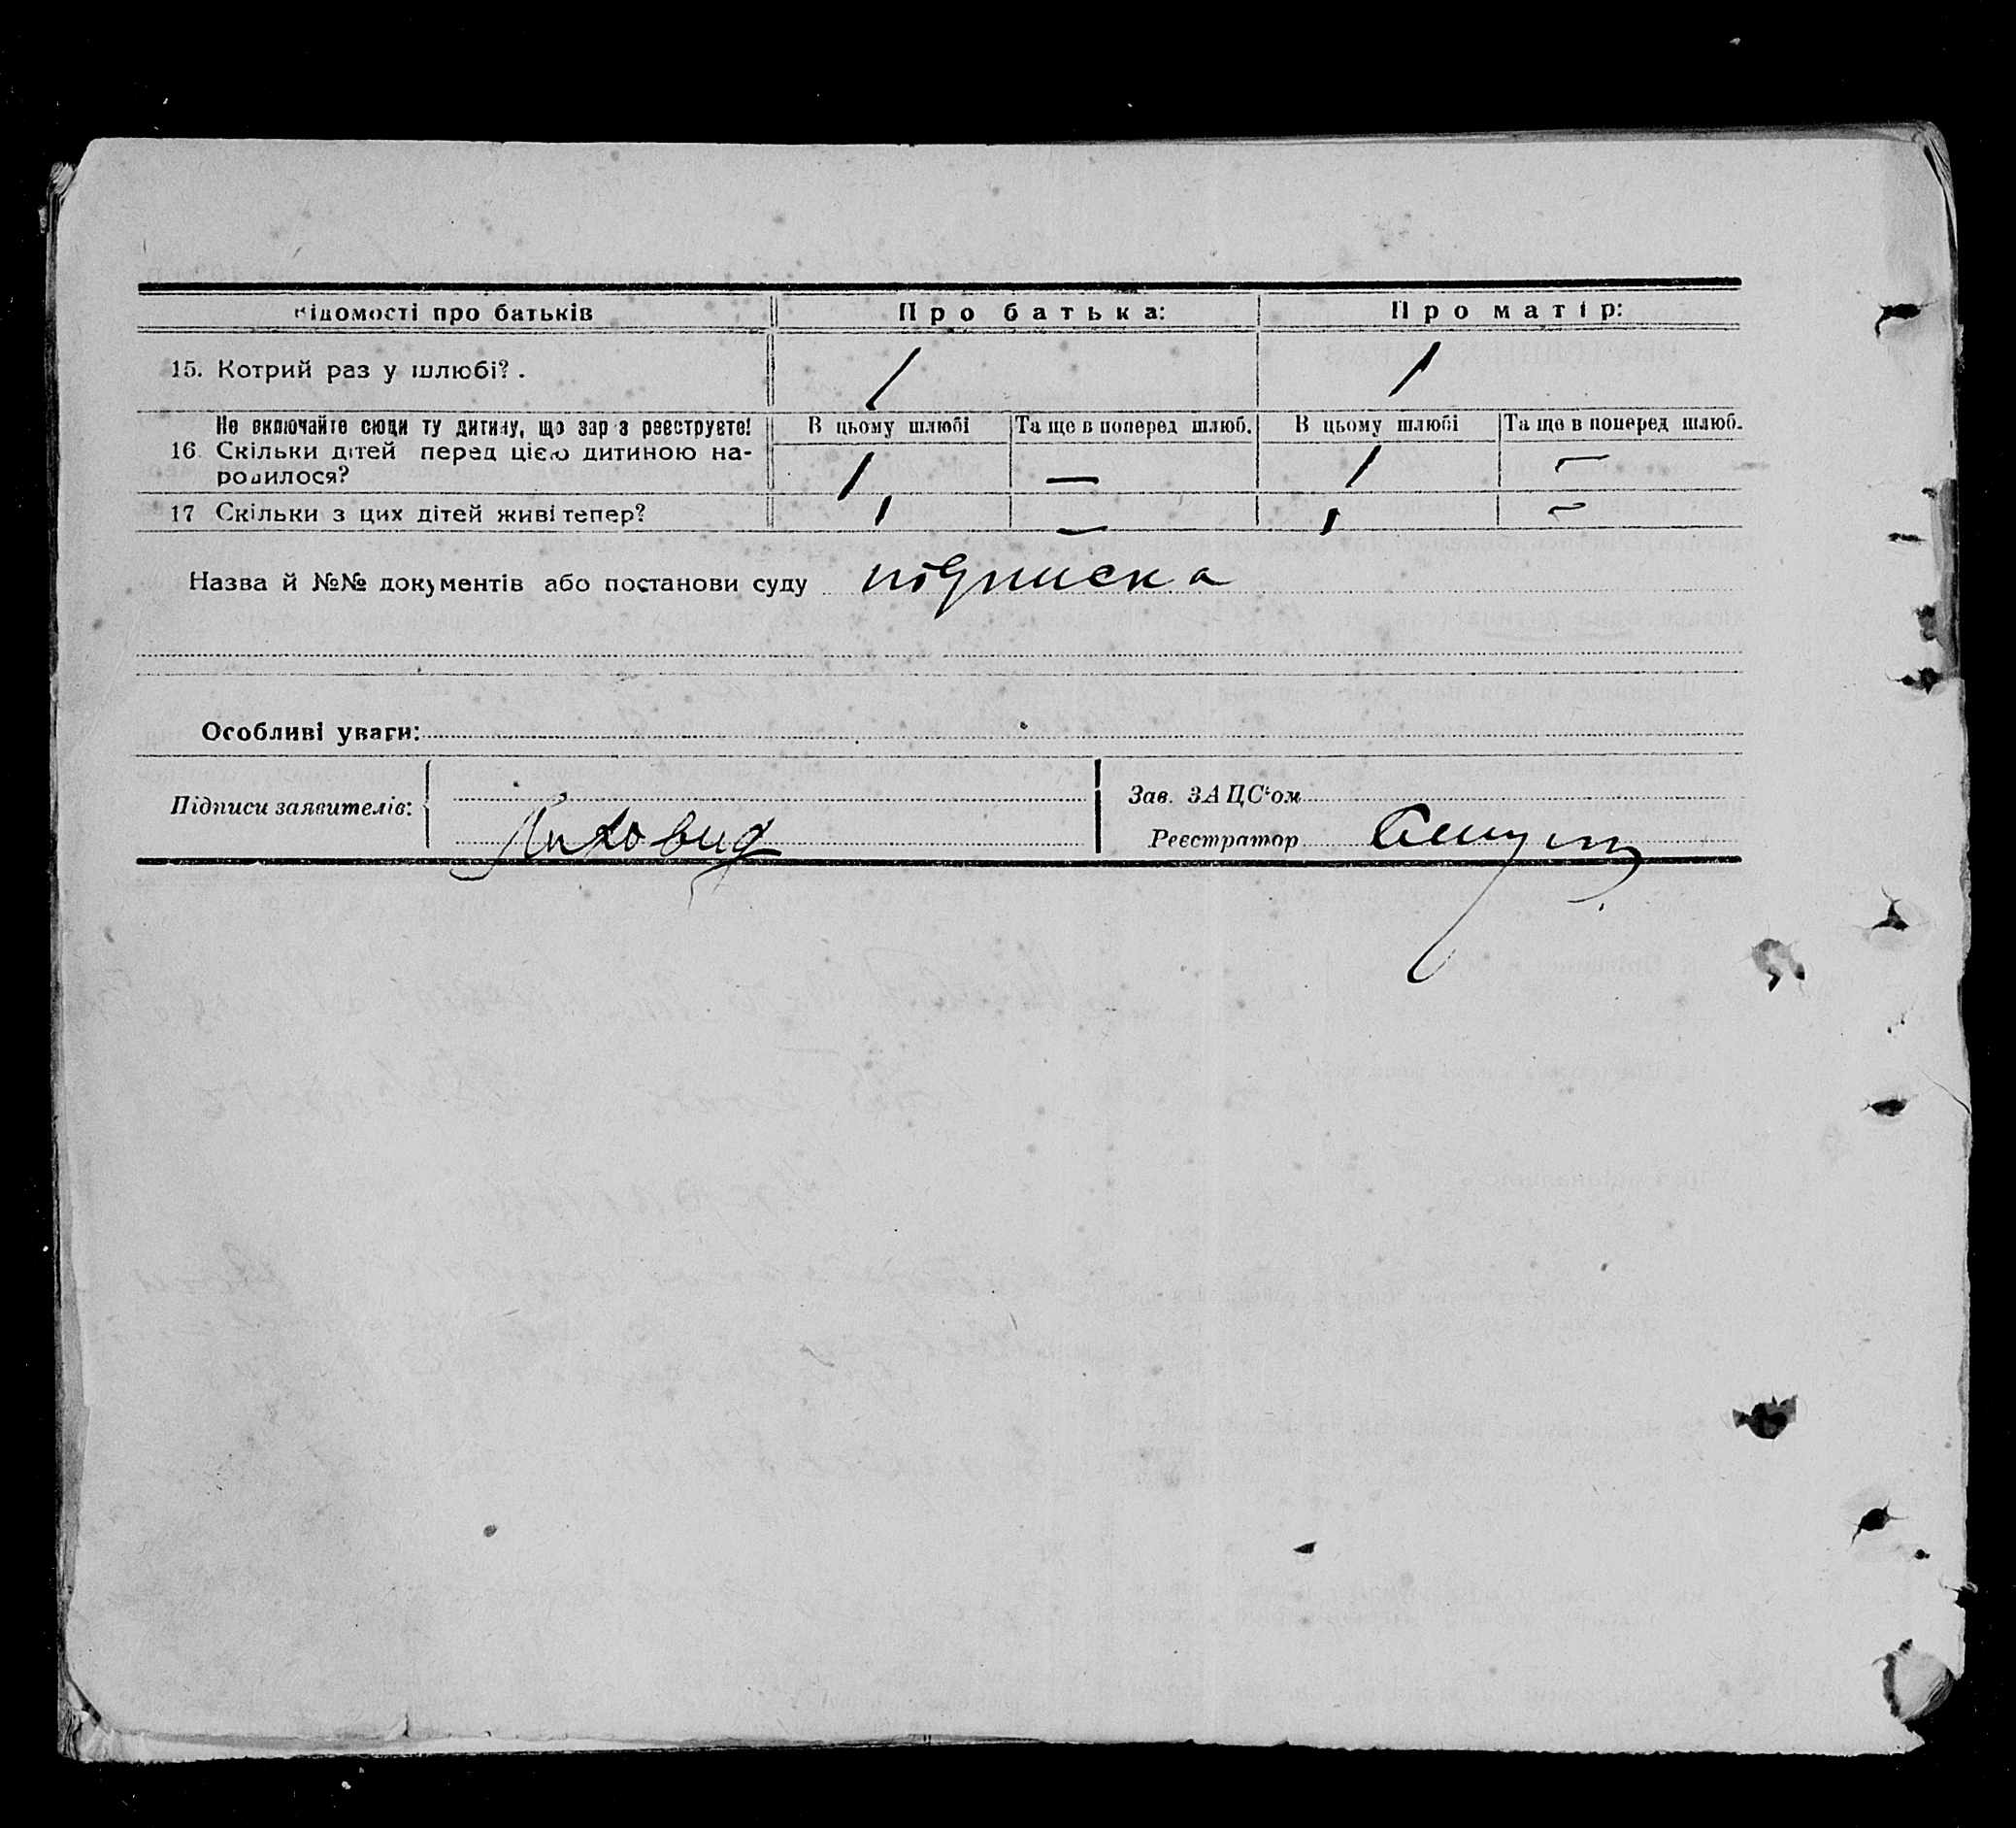 Відомості про батьків Про батька: Про матір:
15. Котрий раз у шлюбі? . 1 1
Не включайте сюди ту дитину, що зараз реєструєте! В цьому шлюбі Та ще в поперед шлюб. В цьому шлюбі Та ще в поперед шлюб.
16 Скільки дітей перед цією дитиною на-
родилося? 1 — 1 —
17 Скільки з цих дітей живі тепер? 1 — 1 —
Назва й №№ документів або постанови суду підписка
Особливі уваги:
Підписи заявителів:
Лиховид
Зав. ЗАЦС'ом
Реєстратор